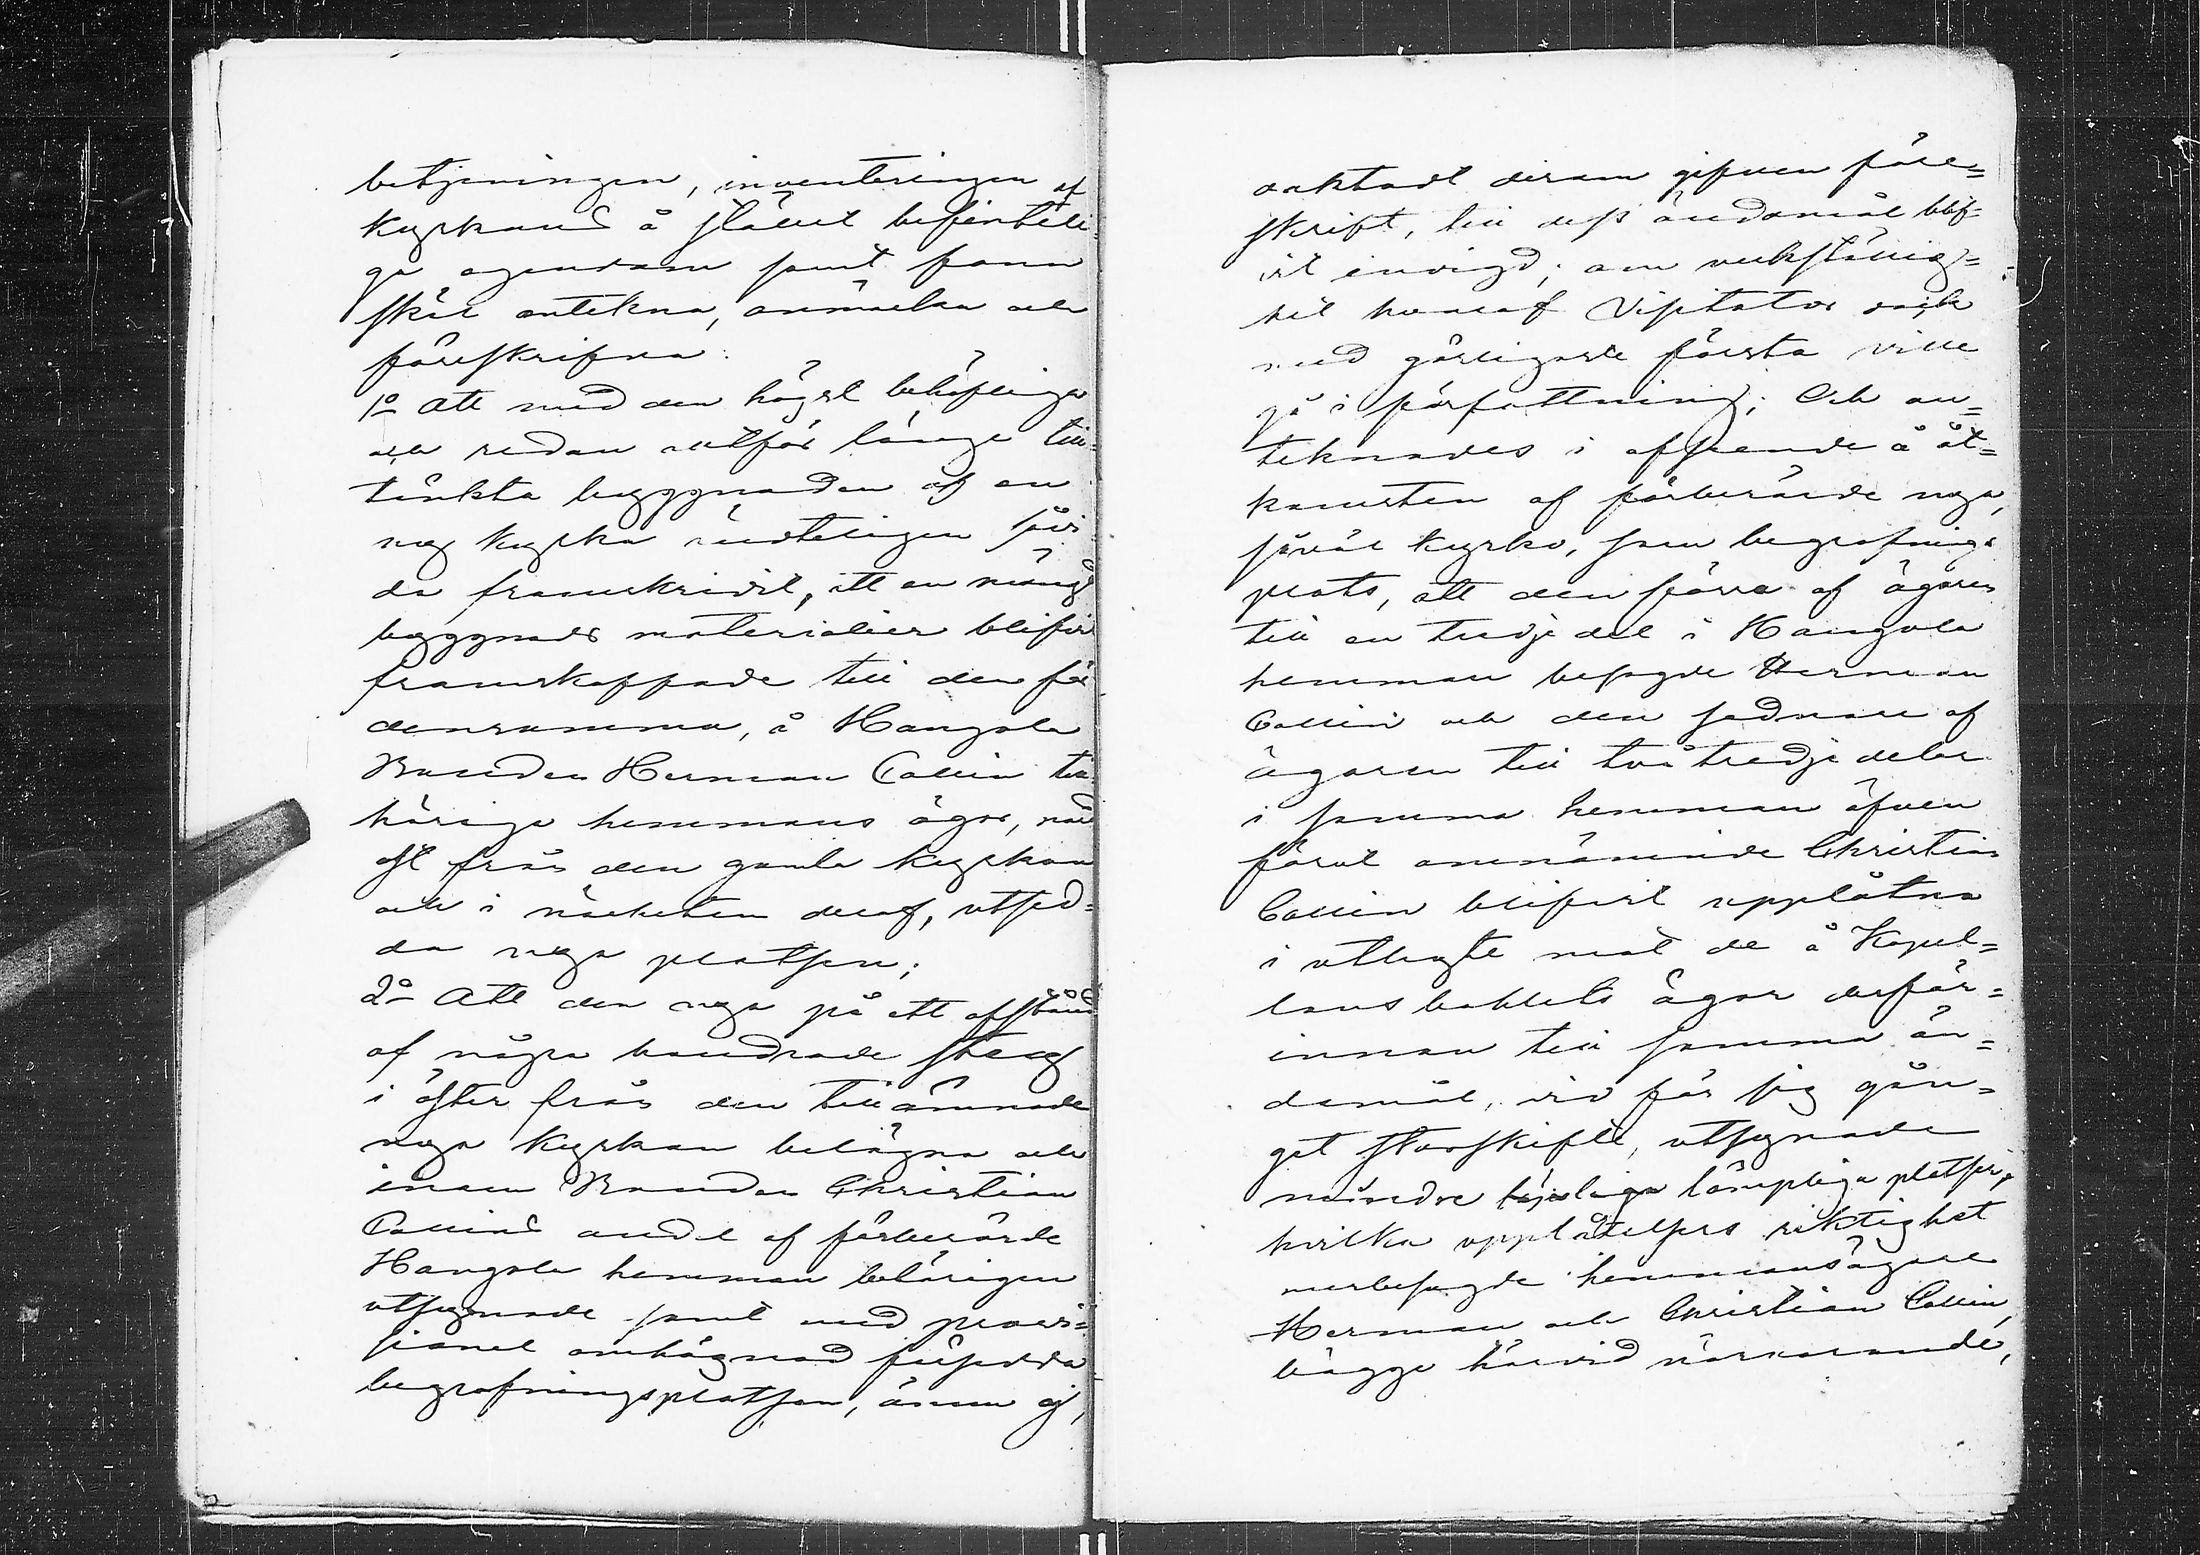 betjeningen, inventeringen af
Kyrkans å stället befinteli-
ga egendom samt fann
skäl antekna, anmärka och
föreskrifva:
1o Att med den högst behöfliga
och redan alltför länge till-
tänkta byggnaden af en
ny Kyrka ändteligen så vi-
da framskridit, att en mängd
byggnads materialier blifvit
framskaffade till den för
densamma, å Hangola
Bonden Herman Collin till-
höriga hemmans ägor, nord
ost från den gamla kyrkan
och i närheten deraf, utsed-
da nya platsen;
2o Att den nya på ett afstånd
af några hundrade steg
i öster från den tillämnade
nya Kyrkan belägna och
inom Bonden Christian
Collins andel af förberörde
Hangola hemman belägen
utsynade samt med provi-
sionel omhägnad försedda
begrafningsplatsen, ännu ej,
oaktadt derom gifven före=
skrift, till dess ändamål blif-
vit invigd; om verkställig=
het hvaraf Visitator dock
med görligaste första ville
gå i författning; Och an=
teknades i afseende å åt=
komsten af förberörde nya,
såväl kyrko, som begrafnings
plats, att den förra af ägaren
till en tredje del i Hangola
hemman besagde Herman
Collin och den sednare af
ägaren till två tredje delar
i samma hemman äfven
förut omnämnde Christian
Collin blifvit upplåtna
i utbyte mot de å Kapel=
lans bohlets ägor derför=
innan till samma än=
damål, vid för sig gån=
get storskifte, utsynade
mindre lämpliga platser,
hvilka upplåtelsers riktighet
merbesagde hemmansägare
Herman och Christian Collin,
bägge härvid närvarande,